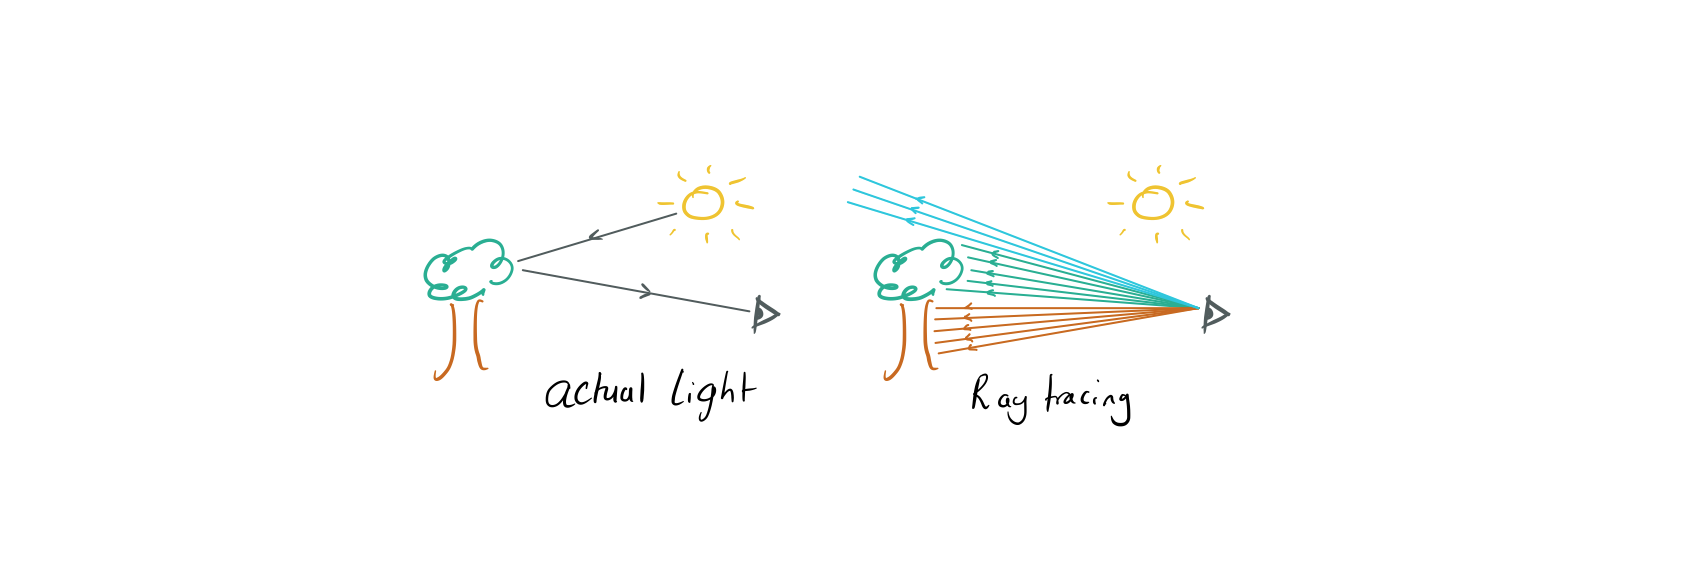 actual light
Ray tracing